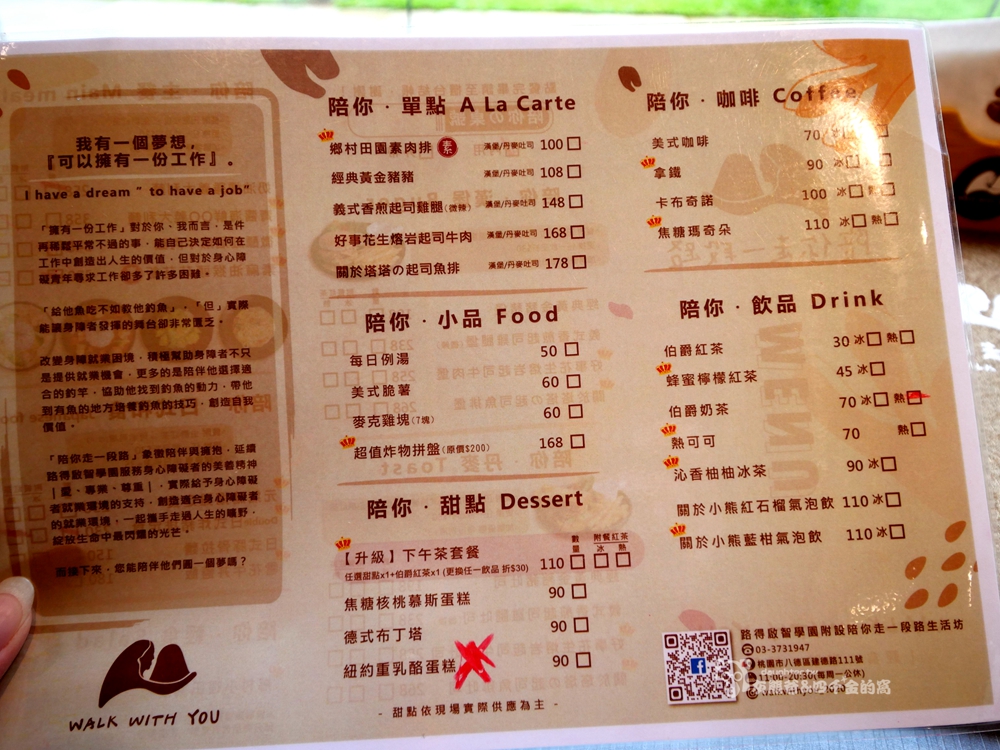 我有一個夢想,
『可以擁有一份工作』。
I have a dream " to have a job"
「擁有一份工作」對於你、我而言,是件
再稀鬆平常不過的事,能自己決定如何在
工作中創造出人生的價值,但對於身心障
礙青年尋求工作卻多了許多困難。
「給他魚吃不如教他釣魚」,「但」實際
能讓身障者發揮的舞台卻非常匱乏。
改變身障就業困境,積極幫助身障者不只
是提供就業機會,更多的是陪伴他選擇適
合的釣竿,協助他找到釣魚的動力,帶他
到有魚的地方培養釣魚的技巧,創造自我
價值。
「陪你走一段路」象徵陪伴與擁抱,延續
路得啟智學園服務身心障礙者的美善精神
|愛、專業、尊重|,實際給予身心障礙
者就業環境的支持,創造適合身心障礙者
的就業環境,一起攜手走過人生的曠野,
綻放生命中最閃耀的光芒。
接下來,您能陪伴他們圓一個夢嗎?
WALK WITH YOU
陪你.單點 A La Carte
鄉村田園素肉排 素 漢堡/丹麥吐司 100
經典黃金豬豬 漢堡/丹麥吐司 108
義式香煎起司雞腿(微辣) 漢堡/丹麥吐司 148
好事花生熔岩起司牛肉 漢堡/丹麥吐司 168
關於塔塔の起司魚排 漢堡/丹麥吐司 178
陪你.小品 Food
每日例湯 50
美式脆薯 60
麥克雞塊(7塊) 60
超值炸物拼盤(原價$200) 168
陪你.甜點 Dessert
數量 附餐紅茶 冰 熱
【升級】下午茶套餐 110
任選甜點x1+伯爵紅茶x1 (更換任一飲品 折$30)
焦糖核桃慕斯蛋糕 90
德式布丁塔 90
紐約重乳酪蛋糕 90
- 甜點依現場實際供應為主 -
陪你.咖啡 Coffee
美式咖啡 70
拿鐵 90 冰
卡布奇諾 100 冰 熱
焦糖瑪奇朵 110 冰 熱
陪你.飲品 Drink
伯爵紅茶 30 冰 熱
蜂蜜檸檬紅茶 45 冰
伯爵奶茶 70 冰 熱
熱可可 70 熱
沁香柚柚冰茶 90 冰
關於小熊紅石榴氣泡飲 110 冰
關於小熊藍柑氣泡飲 110 冰
路得啟智學園附設陪你走一段路生活坊
03-3731947
桃園市八德區建德路111號
11:00-20:30(每周一公休)